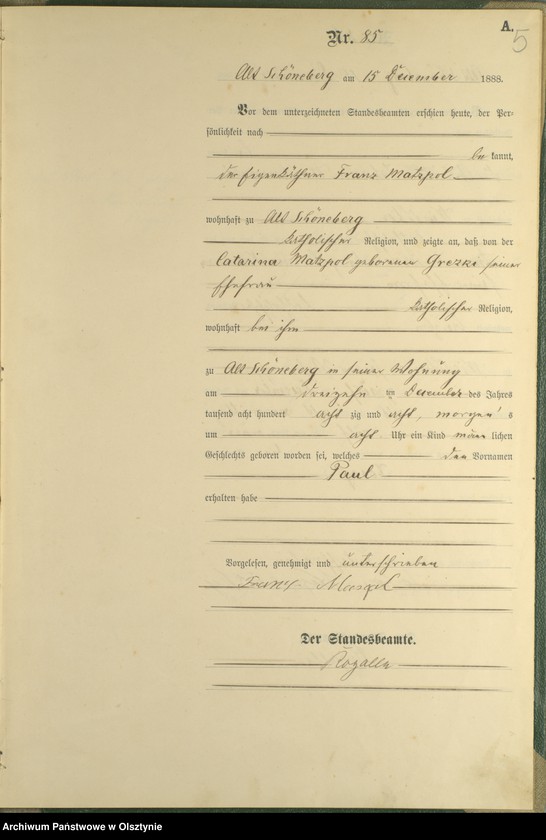 A.
5
Nr. 85
Alt Schöneberg am 15 December 1888.
Vor dem unterzeichneten Standesbeamten erschien heute, der Per-
sönlichkeit nach
be kannt,
der Eigenkäthner Franz Matzpol
wohnhaft zu Alt Schöneberg
katholischer Religion, und zeigte an, daß von der
Catarina Matzpol geborenen Grezki seiner
Ehefrau
katholischer Religion,
wohnhaft bei ihm
zu Alt Schöneberg in seiner Wohnung
am dreizehn ten December des Jahres
tausend acht hundert acht zig und acht, morgen's
um acht Uhr ein Kind männ lichen
Geschlechts geboren worden sei, welches den Vornamen
Paul
erhalten habe
Vorgelesen, genehmigt und unterschrieben
Franz
Der Standesbeamte.
Rogalla
Archiwum Państwowe w Olsztynie